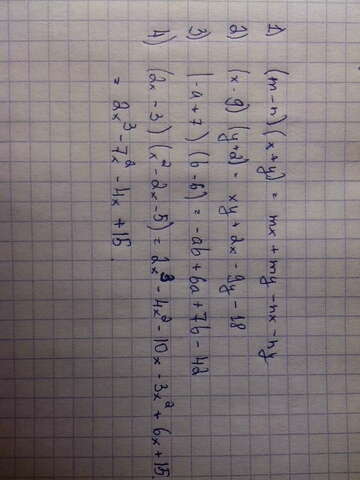 1) (m-n)(x+y) = mx + my - nx - ny
2) (x-9)(y+2) = xy + 2x - 9y - 18
3) (-a+7)(b-6) = -ab + 6a + 7b - 42
4) (2x-3)(x²-2x-5) = 2x³ - 4x² - 10x - 3x² + 6x + 15
= 2x³ - 7x² - 4x + 15.